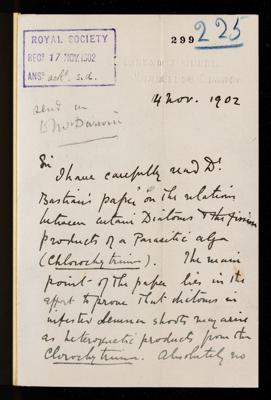 ROYAL SOCIETY
RECD 17 NOV. 1902
ANSD ackd. s.d.
299
225
send on
to Mr Darwin
14 Nov. 1902
Sir
I have carefully read Dr.
Bastian's paper on the relation
between certain Diatoms & the fission
products of a Parasitic alga
(Chlorochytrium). The main
point of the paper lies in the
effort to prove that diatoms in
infested Lemna shoots may arise
as heterogenetic products from the
Clorochytrium. Absolutely no